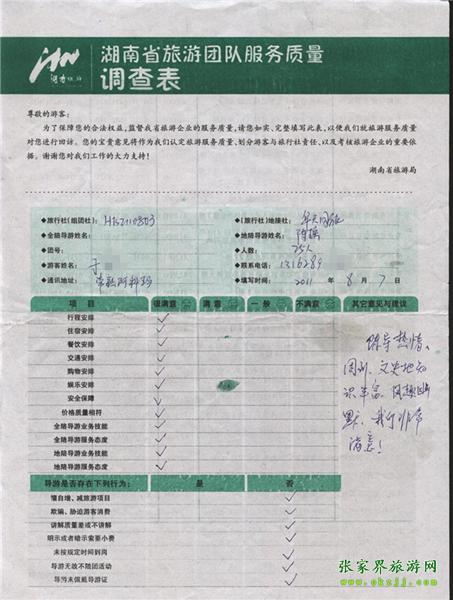 湖南省旅游团队服务质量
调查表
尊敬的游客:
为了保障您的合法权益,监督我省旅游企业的服务质量,请您如实、完整填写此表,以便我们就旅游服务质量
对您进行回访。您的宝贵意见将作为我们认定旅游服务质量、划分游客与旅行社责任、以及考核旅游企业的重要依
据。谢谢您对我们工作的大力支持!
湖南省旅游局
◆旅行社(组团社): ◆旅行社(地接社):
◆全陪导游姓名: ◆地陪导游姓名:
◆团号: ◆人数: 25人
◆游客姓名: 于 ◆联系电话: 1316289
◆通讯地址: ◆填写时间: 2011年8月7日
项 目 很满意 满 意 一 般 不满意 其它意见与建议
行程安排
住宿安排
餐饮安排
交通安排
购物安排
娱乐安排
安全保障
价格质量相符
全陪导游业务技能
全陪导游服务态度
地陪导游业务技能
地陪导游服务态度
陈导热情、
周到、文史地知
识丰富、风趣幽
默、我们非常
满意!
导游是否存在下列行为: 是 否
擅自增、减旅游项目
欺骗、胁迫游客消费
讲解质量差或不讲解
明示或者暗示索要小费
未按规定时间到岗
导游无故不随团活动
导游未佩戴导游证
张家界旅游网
www.okzjj.com